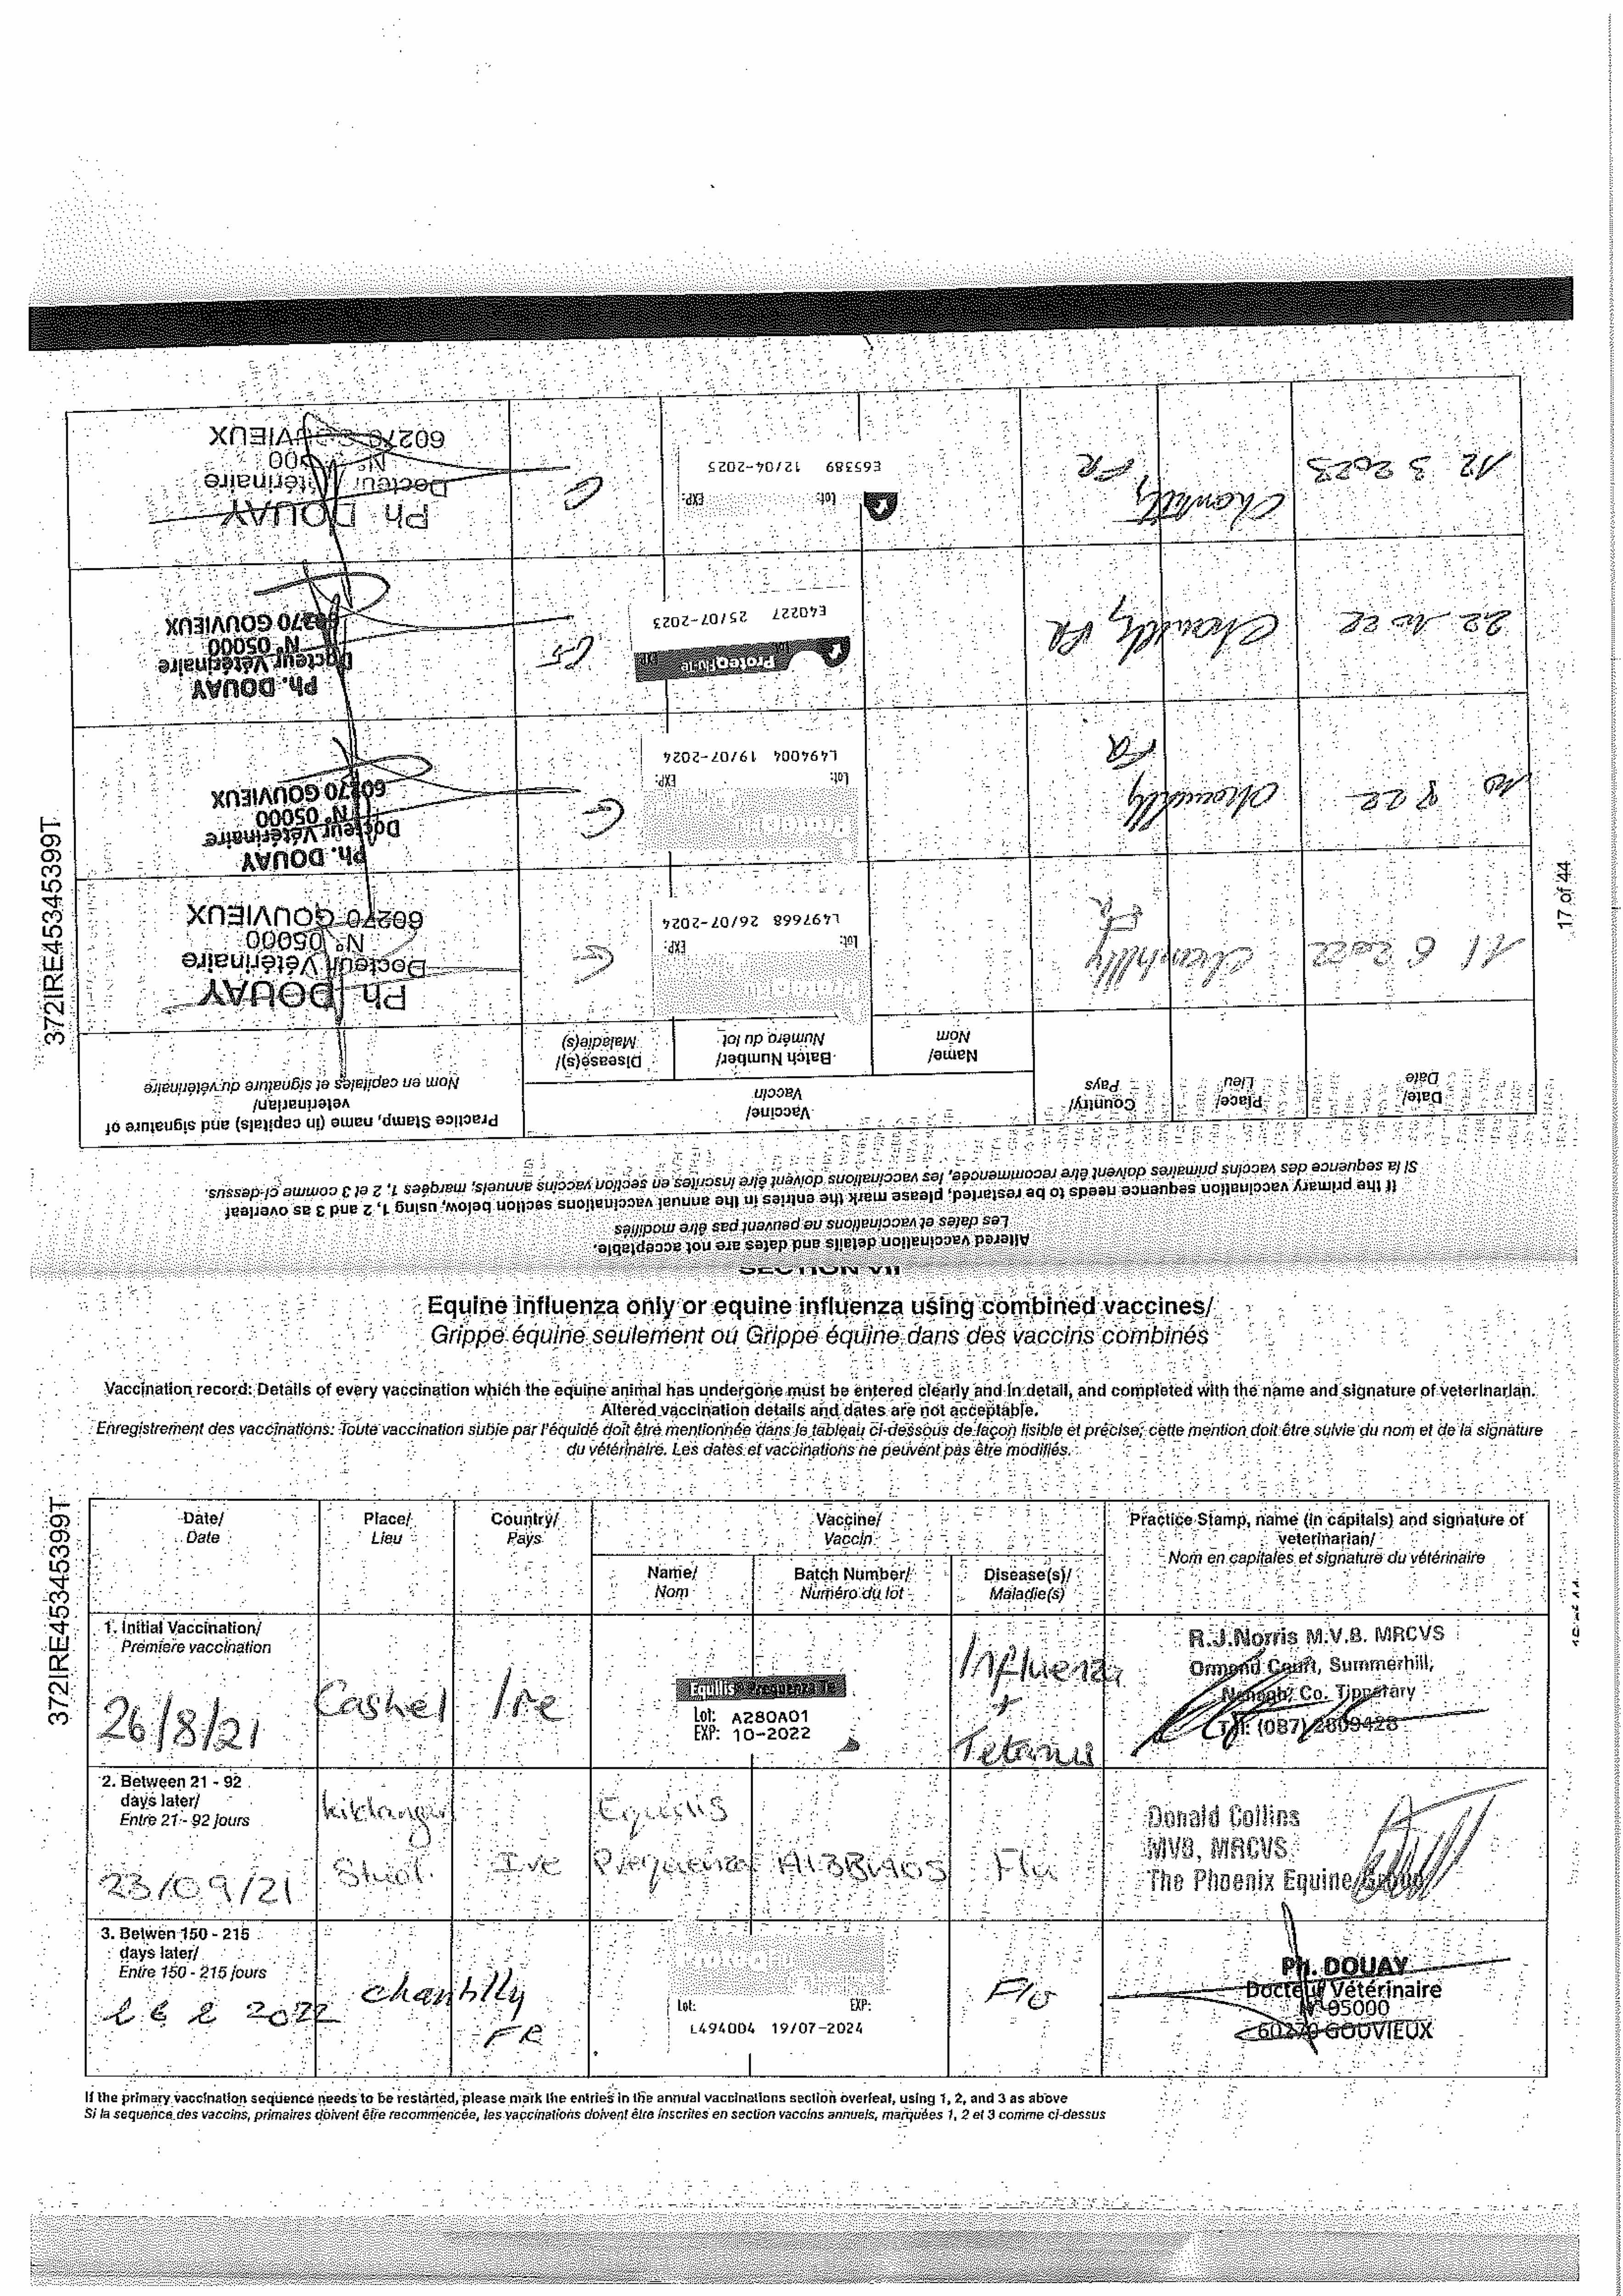 SECTION VII
Equine influenza only or equine influenza using combined vaccines/
Grippe équine seulement ou Grippe équine dans des vaccins combinés
Vaccination record: Details of every vaccination which the equine animal has undergone must be entered clearly and in detail, and completed with the name and signature of veterinarian.
Altered vaccination details and dates are not acceptable.
Enregistrement des vaccinations: Toute vaccination subie par l'équidé doit être mentionnée dans le tableau ci-dessous de façon lisible et précise; cette mention doit être suivie du nom et de la signature
du vétérinaire. Les dates et vaccinations ne peuvent pas être modifiés.
372IRE45345399T
Date/ Place/ Country/ Vaccine/ Practice Stamp, name (in capitals) and signature of
Date Lieu Pays Vaccin veterinarian/
Nom en capitales et signature du vétérinaire
Name/ Batch Number/ Disease(s)/
Nom Numéro du lot Maladie(s)
1. Initial Vaccination/
Première vaccination
26/8/21 Cashel Ire
Equilis Prequenza Te
Lot: A280A01
EXP: 10-2022
Influenza
+
Tetanus
R.J.Norris M.V.B. MRCVS
Ormond Court, Summerhill,
Nenagh, Co. Tipperary
Tel: (087) 2809428
2. Between 21 - 92
days later/
Entre 21 - 92 jours
23/09/21
Stud. Ire
Equilis
Prequenza Flu
Donald Collins
MVB, MRCVS
The Phoenix Equine Group
3. Betwen 150 - 215
days later/
Entre 150 - 215 jours
2022
Chantilly
FR
Lot: EXP:
L494004 19/07-2024
Flu
Ph. DOUAY
Docteur Vétérinaire
N° 05000
60270 GOUVIEUX
If the primary vaccination sequence needs to be restarted, please mark the entries in the annual vaccinations section overleaf, using 1, 2, and 3 as above
Si la sequence des vaccins, primaires doivent être recommencée, les vaccinations doivent être inscrites en section vaccins annuels, marquées 1, 2 et 3 comme ci-dessus
Altered vaccination details and dates are not acceptable.
Les dates et vaccinations ne peuvent pas être modifiés
If the primary vaccination sequence needs to be restarted, please mark the entries in the annual vaccinations section below, using 1, 2 and 3 as overleaf
Si la sequence des vaccins primaires doivent être recommencée, les vaccinations doivent être inscrites en section vaccins annuels, marquées 1, 2 et 3 comme ci-dessus.
372IRE45345399T
17 of 44
Date/ Place/ Country/ Vaccine/ Practice Stamp, name (in capitals) and signature of
Date Lieu Pays Vaccin veterinarian/
Nom en capitales et signature du vétérinaire
Name/ Batch Number/ Disease(s)/
Nom Numéro du lot Maladie(s)
11 6 2022 Chantilly
FR
Lot: EXP:
L497668 26/07-2024
Ph DOUAY
Docteur Vétérinaire
N° 05000
60270 GOUVIEUX
Chantilly
FR
Lot: EXP:
L494004 19/07-2024
Ph. DOUAY
Docteur Vétérinaire
N° 05000
60270 GOUVIEUX
22 10 22 Chantilly FR
ProteqFlu-Te
Lot: EXP:
E40227 25/07-2023
Ph. DOUAY
Docteur Vétérinaire
N° 05000
60270 GOUVIEUX
12 3 2023 Chantilly
FR
Lot: EXP:
E65389 12/04-2025
Ph DOUAY
Docteur Vétérinaire
60270 GOUVIEUX